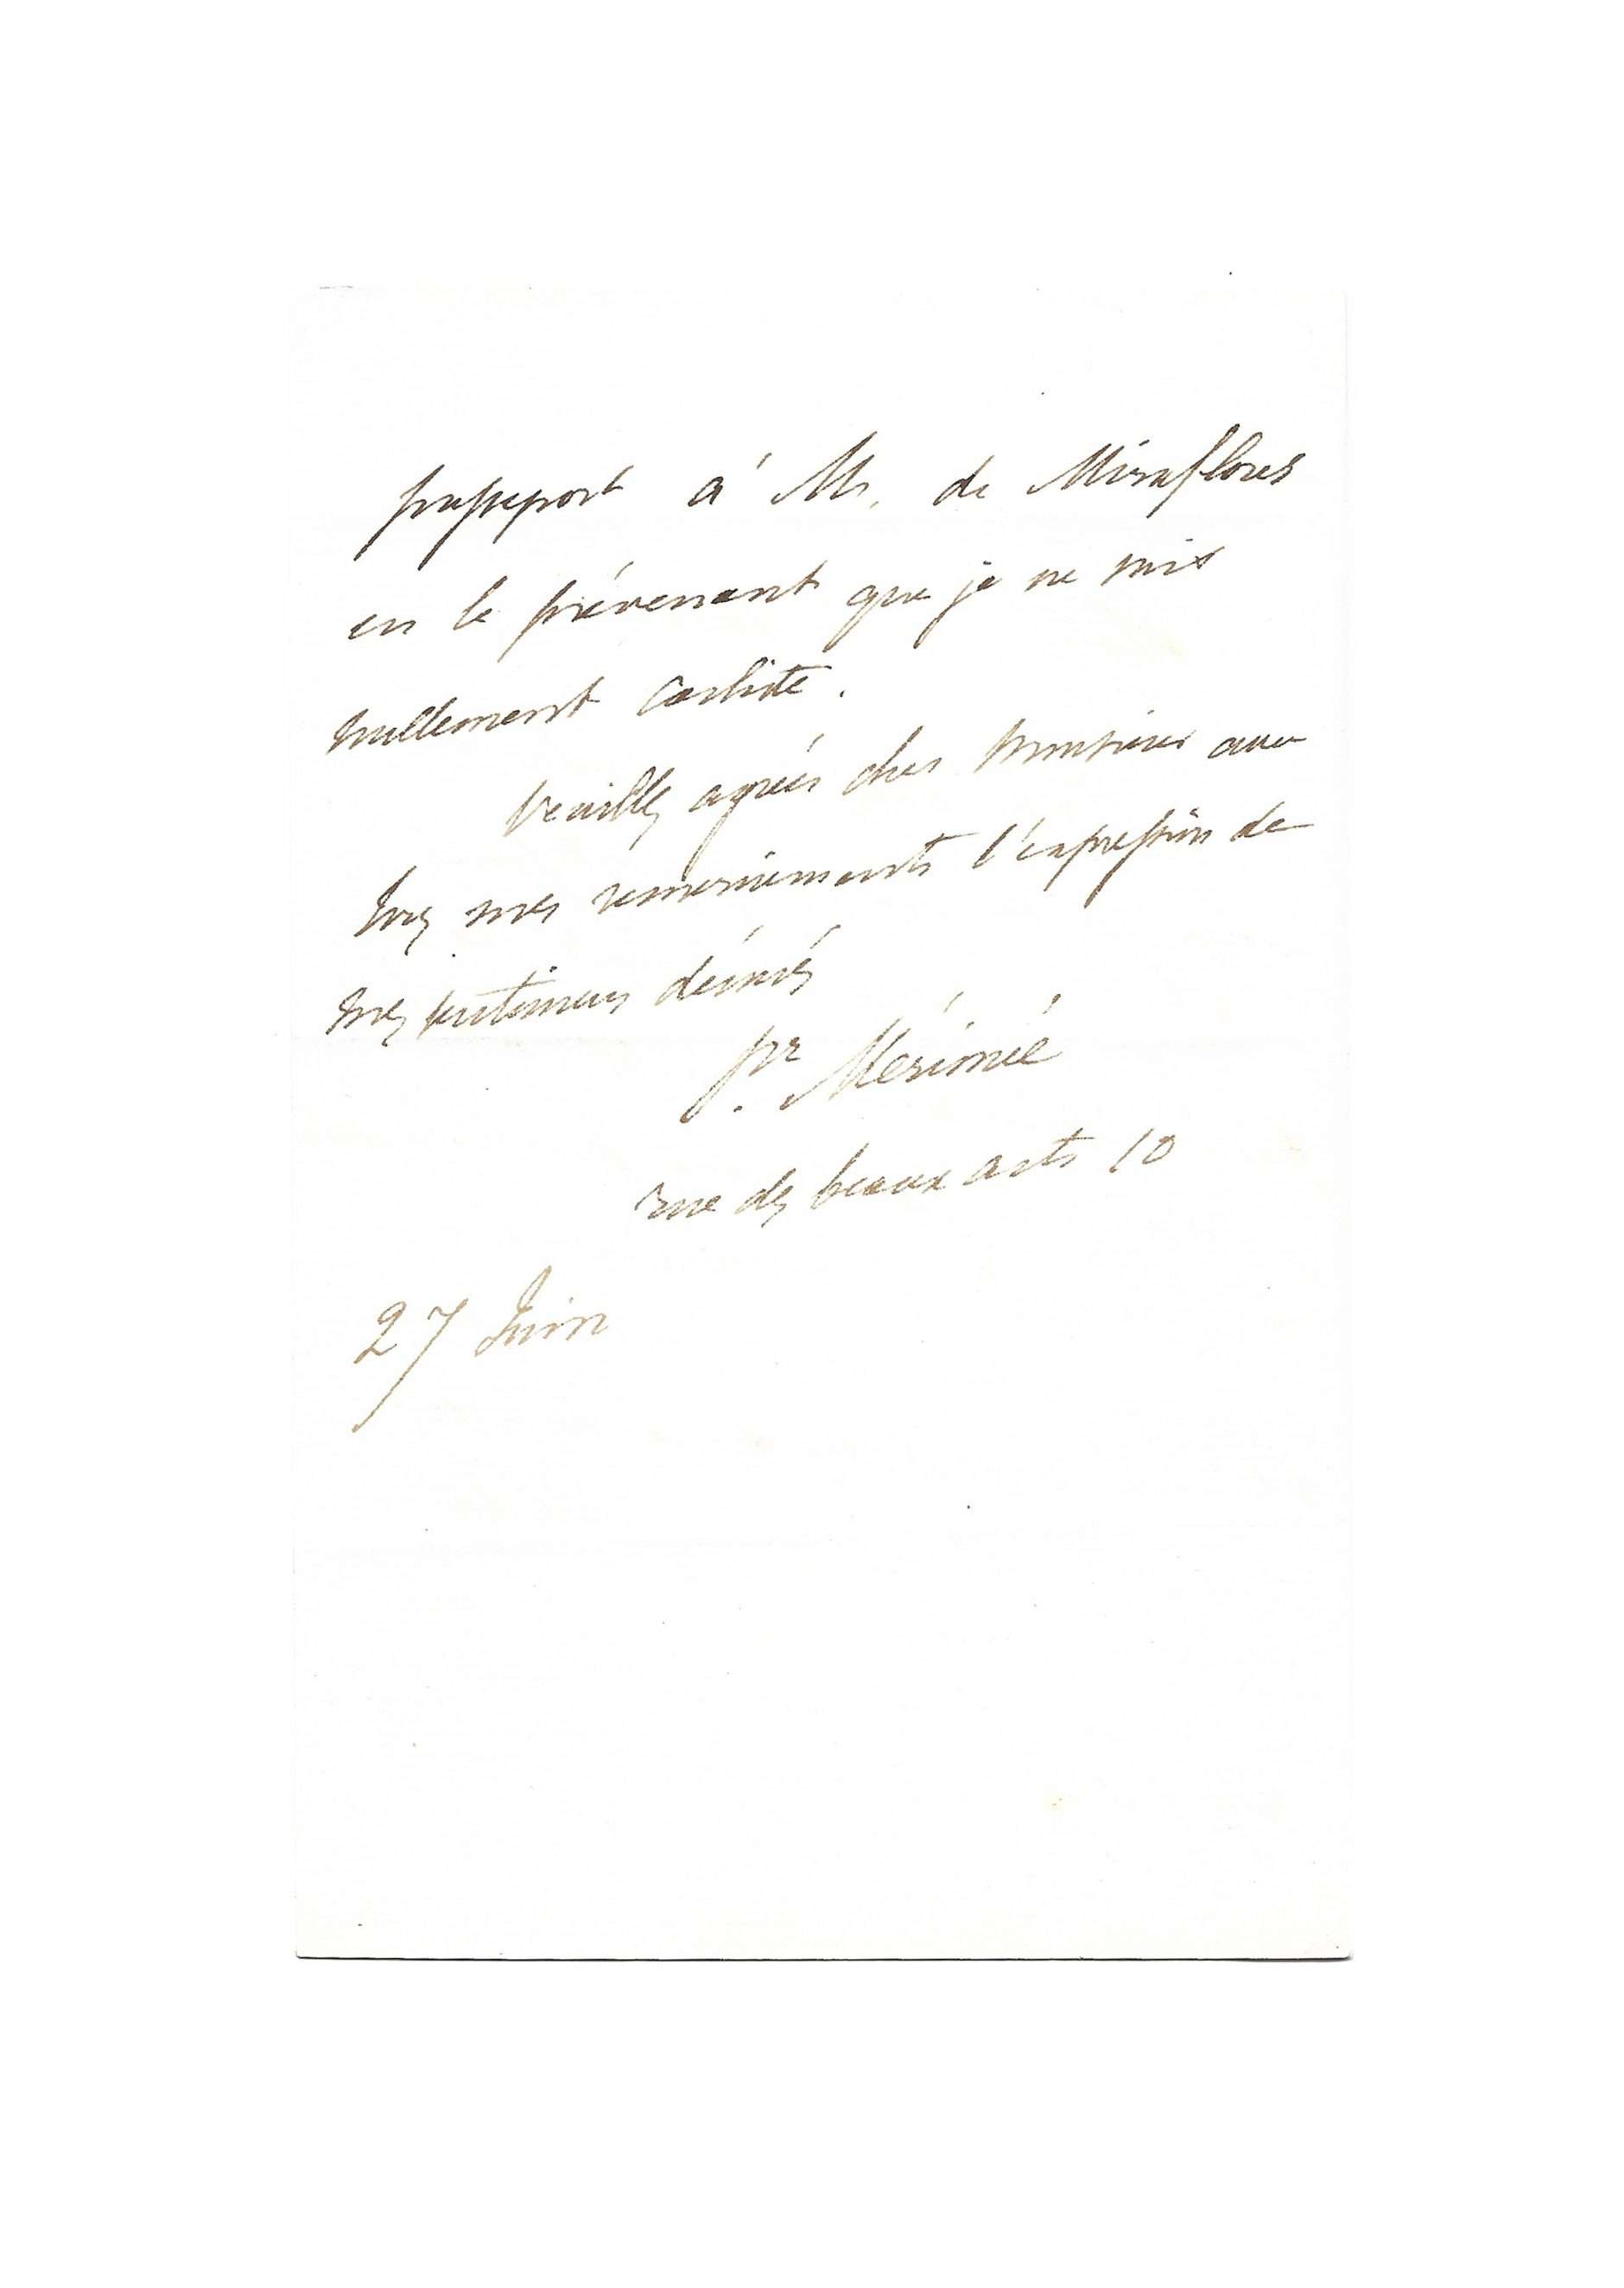 passeport à Mr. de Miraflores
en le prévenant que je ne suis
nullement carliste.
Veuillez agréer cher Monsieur avec
tous mes remerciements l'expression de
mes sentimens dévoués
Pr. Mérimée
rue des beaux arts 10
27 Juin